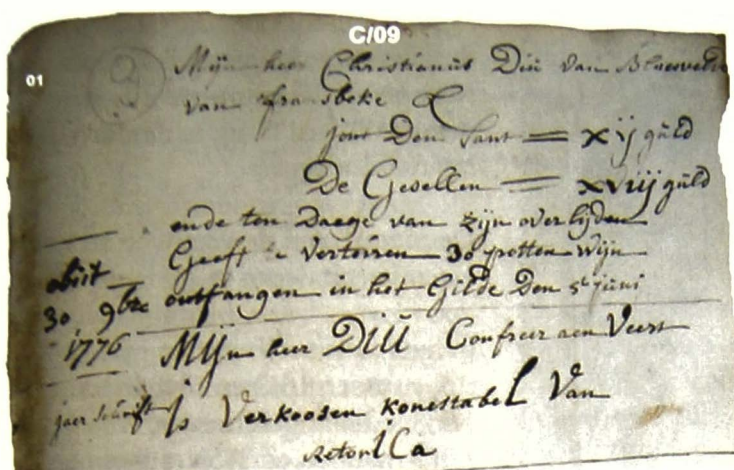 C/09
01
3
Mijn heer Christianus Diu van Blaesvelt
van fransbeke &
jont Den Sant = xij guld
De Gesellen = xviij guld
ende ten Daege van zijn overlijden
Geeft te Verteirren 30 potten wijn
ontfangen in het Gilde Den 5e juni
obiit
30 9bre
1776
MIJn heer DIU Confreer aen Veert
jaer schrift
js Verkoosen konestabeL Van
RetorICa